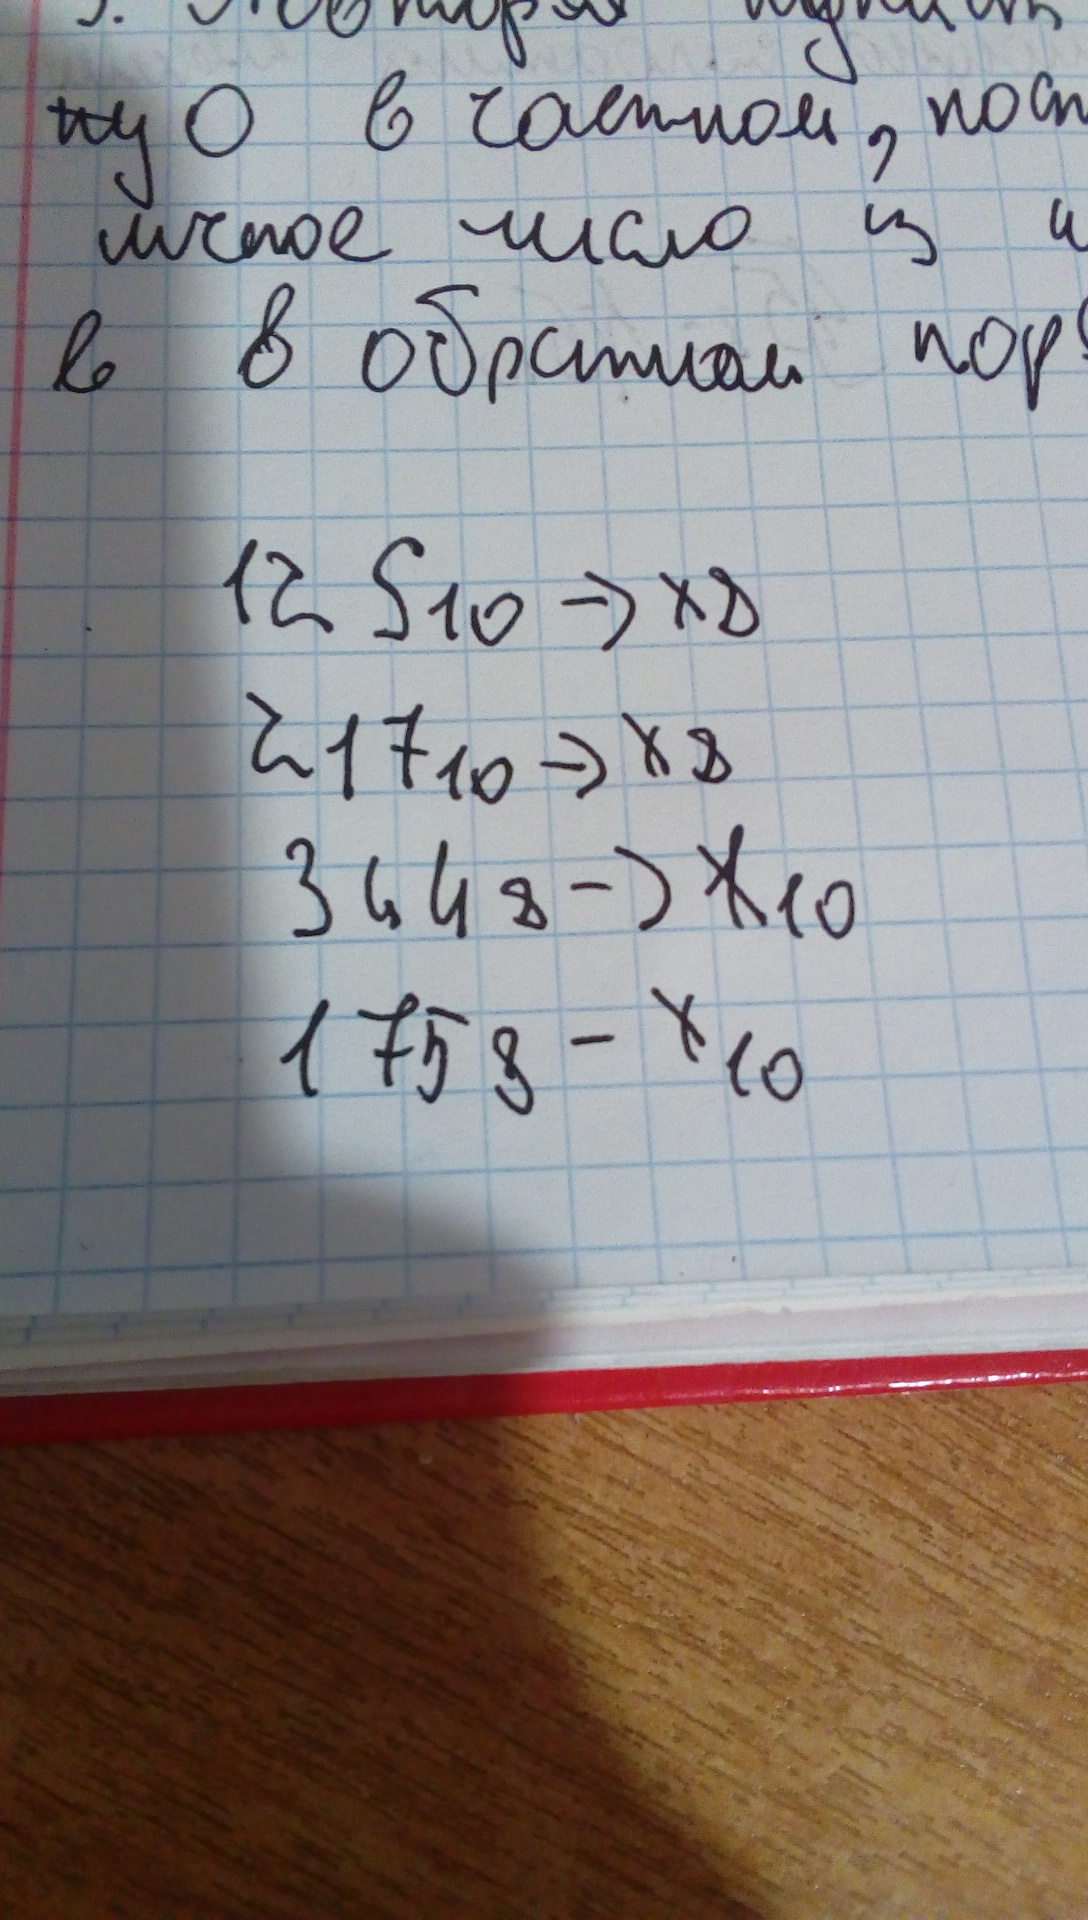 3. Повторя
ну 0 в частном, пост
ичное число из
в в обратном пор
125₁₀ → x₈
217₁₀ → x₈
344₈ → x₁₀
175₈ - x₁₀